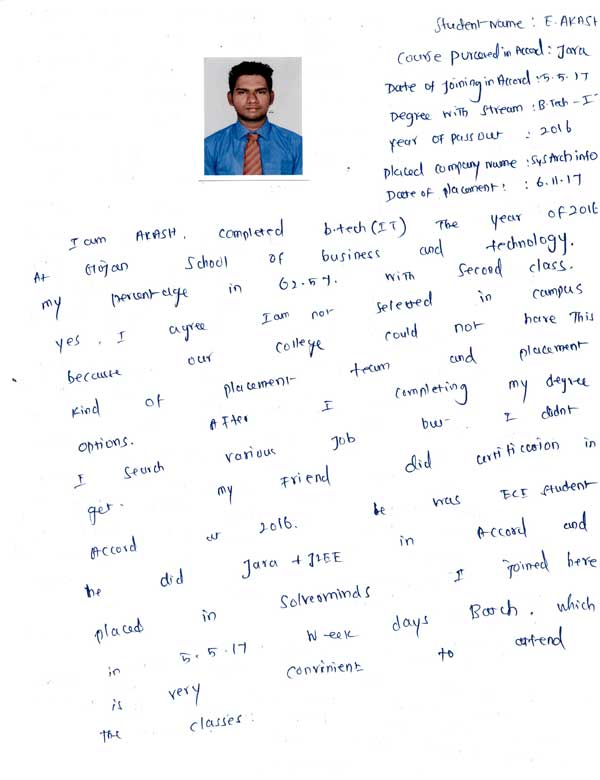 Student Name : E. AKASH
Course purcaved in Accord : Java
Date of Joining in Accord : 5.5.17
Degree with Stream : B.Tech - I
year of pass out : 2016
placed company name : SysArch info
Date of placement : : 6.11.17
I am AKASH. Completed b.tech (IT) The year of 2016
At Gojan School of business and technology.
my percentage in 62.5%. with Second class.
yes. I agree I am not seleted in campus
because our college could not have This
kind of placement team and placement
options. After I completing my degree
I search various Job but I didnt
get. my Friend did certification in
Accord at 2016. he was ECE student
he did Java + J2EE in Accord and
placed in Solveominds I joined here
in 5.5.17 Week days Batch. which
is very convinient to attend
the classes.